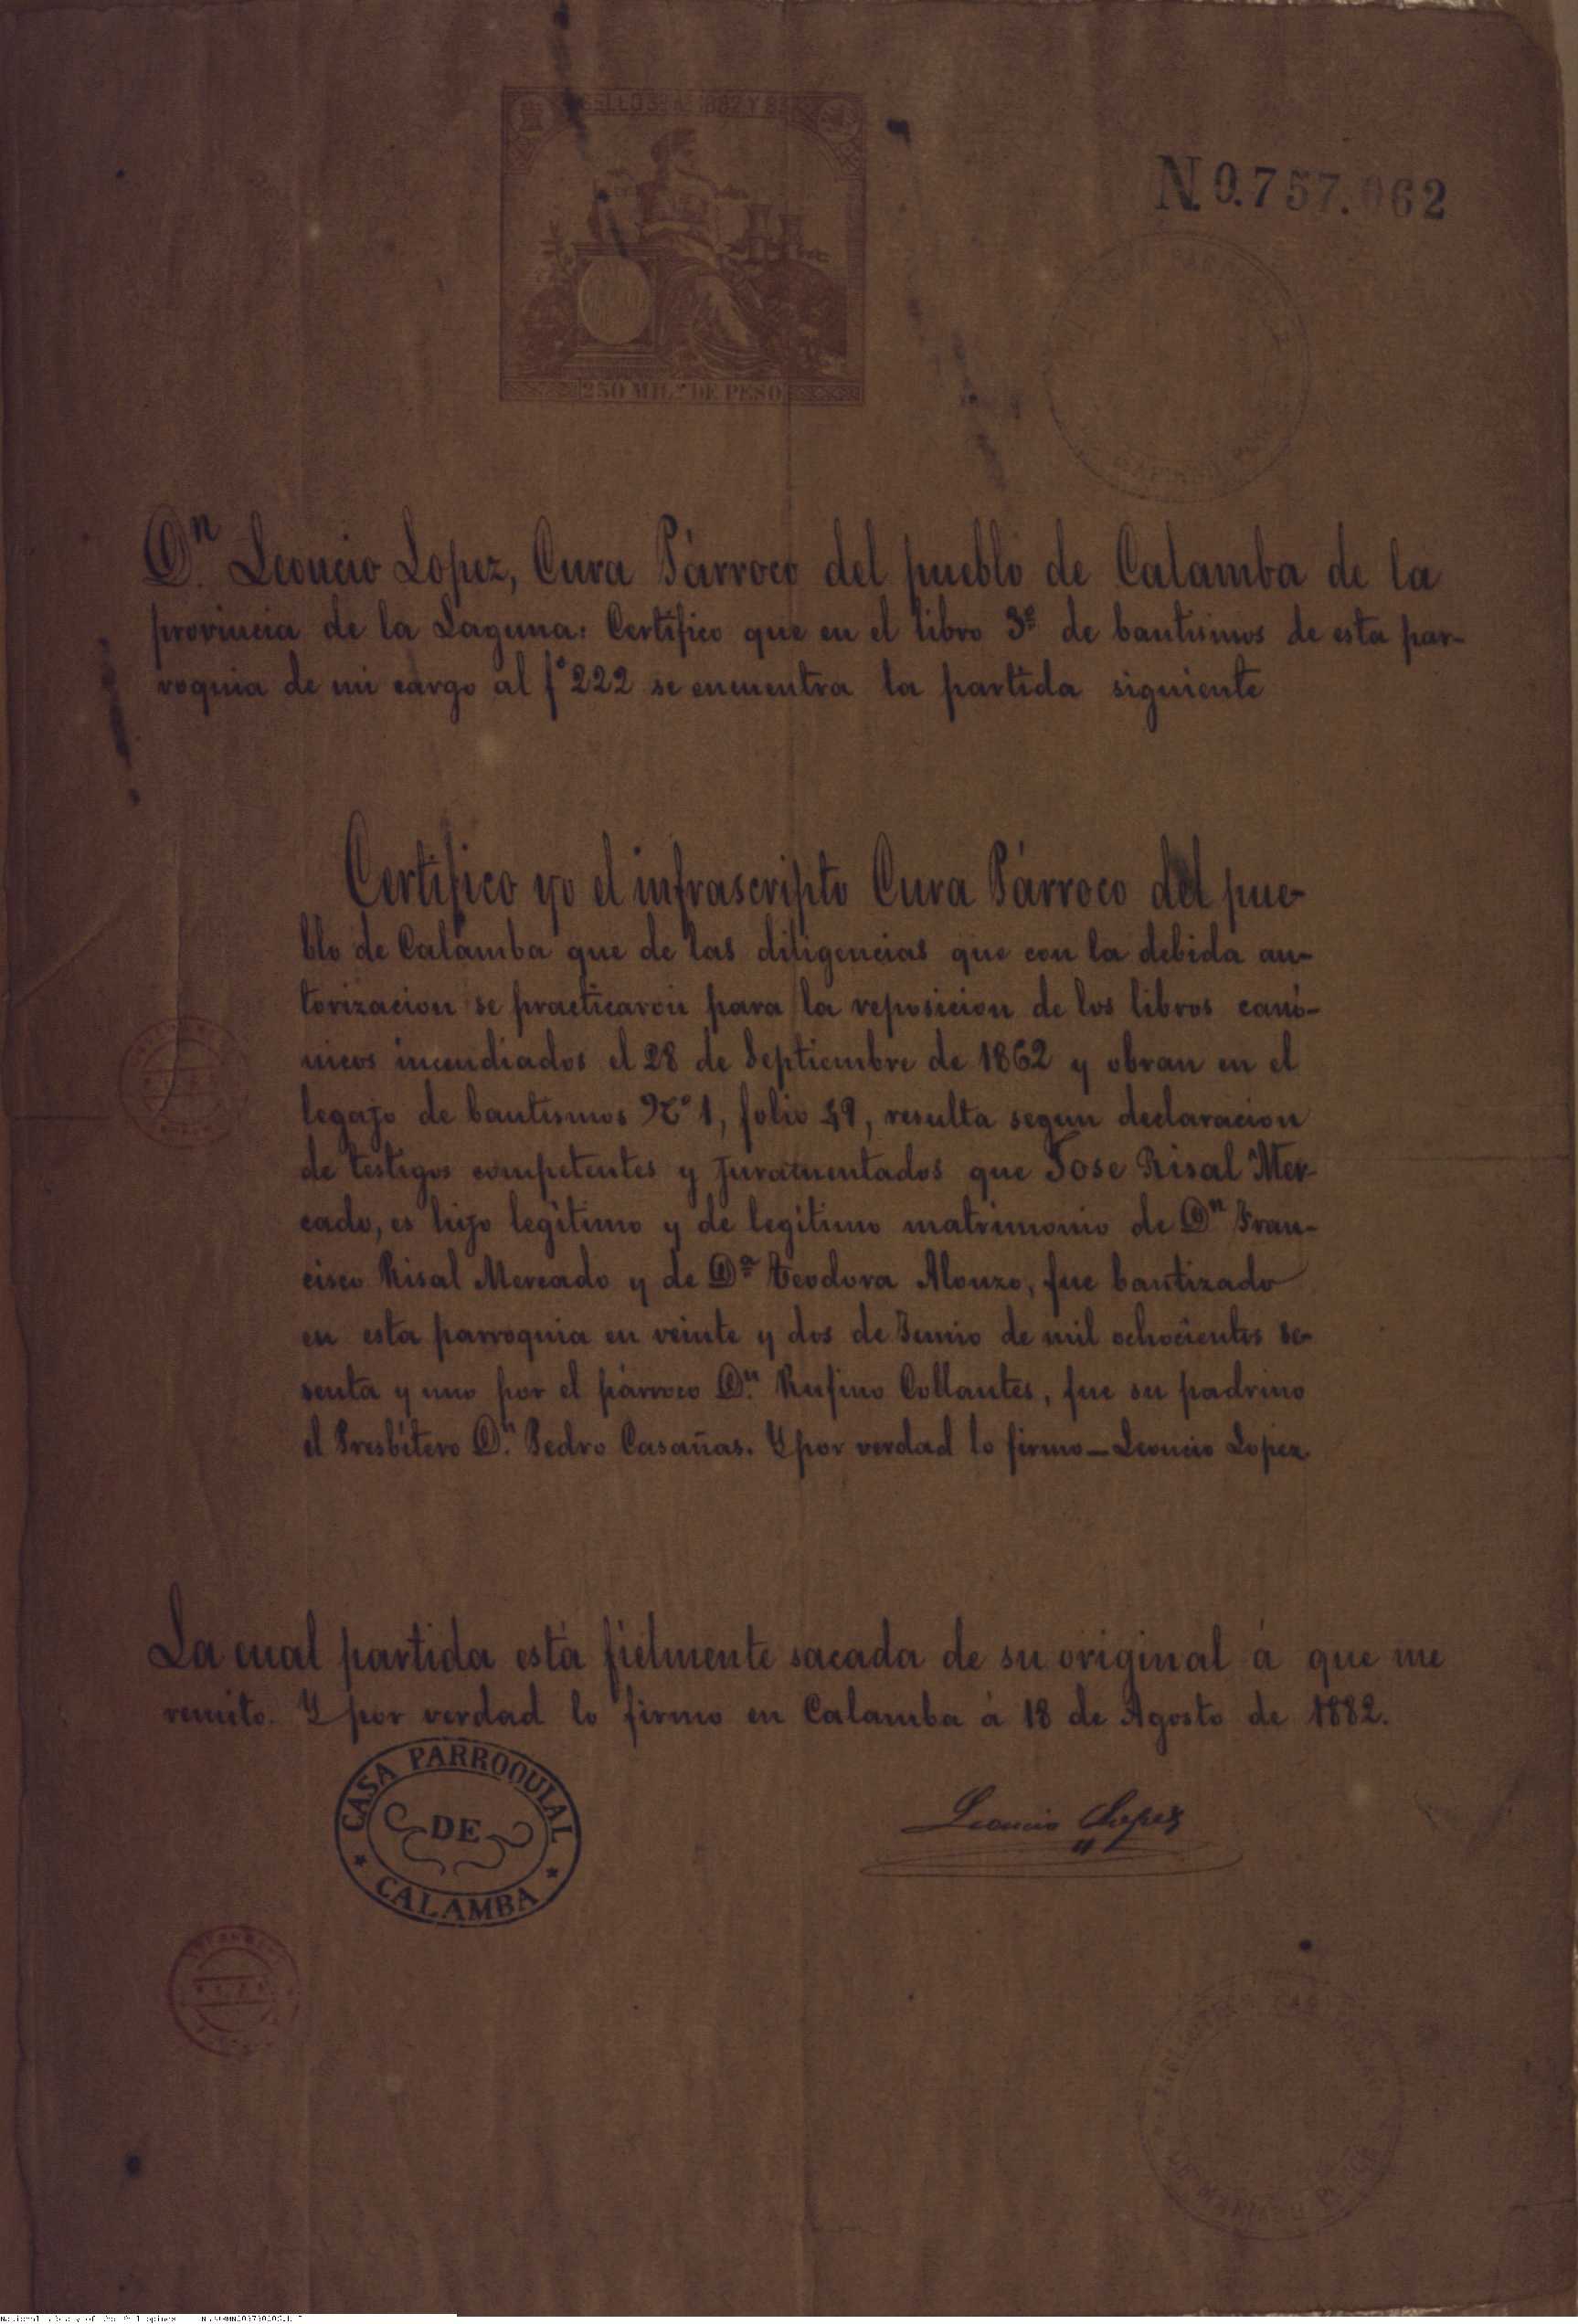 SELLO 3º 1882 Y 83
N.0.757.062
250 MIL.s DE PESO
Dn. Leoncio Lopez, Cura Párroco del pueblo de Calamba de la
provincia de la Laguna: Certifico que en el libro 3º de bautismos de esta par-
roquia de mi cargo al fº 222 se encuentra la partida siguiente
Certifico yo el infrascripto Cura Párroco del pue-
blo de Calamba que de las diligencias que con la debida au-
torizacion se practicaron para la reposicion de los libros canó-
nicos incendiados el 28 de Septiembre de 1862 y obran en el
legajo de bautismos Nº 1, folio 49, resulta segun declaracion
de testigos competentes y juramentados que Jose Risal Mer-
cado, es hijo legítimo y de legítimo matrimonio de Dn Fran-
cisco Risal Mercado y de Dª Teodora Alonzo, fue bautizado
en esta parroquia en veinte y dos de Junio de mil ochocientos se-
senta y uno por el párroco Dn. Rufino Collantes, fue su padrino
el Presbítero Dn. Pedro Casañas. Y por verdad lo firmo — Leoncio Lopez
La cual partida está fielmente sacada de su original á que me
remito. Y por verdad lo firmo en Calamba á 18 de Agosto de 1882.
CASA PARROQUIAL
DE
CALAMBA
Leoncio Lopez